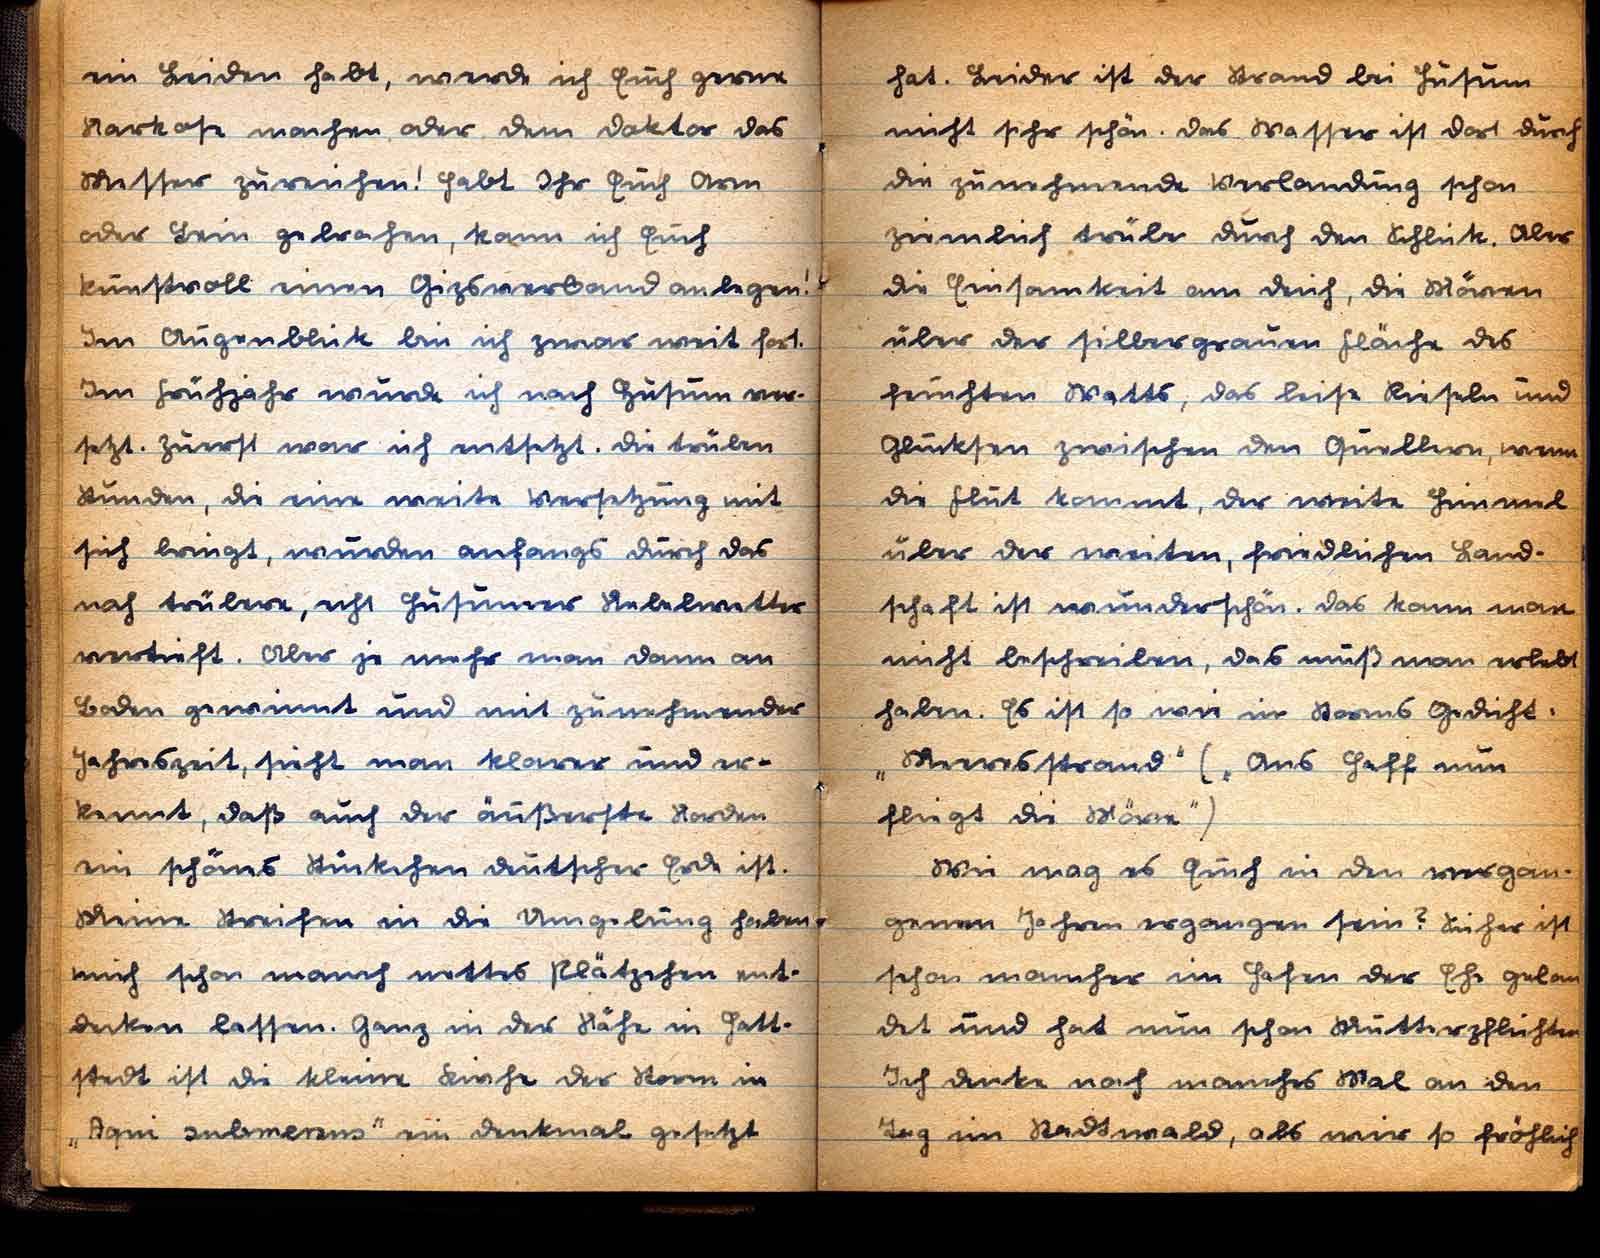 ein Leiden habt, werde ich Euch gerne
Narkose machen oder dem Doktor das
Messer zureichen! Habt Ihr Euch Arm
oder Bein gebrochen, kann ich Euch
kunstvoll einen Gipsverband anlegen!
Im Augenblick bin ich zwar weit fort.
Im Frühjahr wurde ich nach Husum ver-
setzt. Zuerst war ich entsetzt. Die trüben
Stunden, die eine weite Versetzung mit
sich bringt, wurden anfangs durch das
noch trübere, echt Husumer Nebelwetter
vertieft. Aber je mehr man dann an
Boden gewinnt und mit zunehmender
Jahreszeit, sieht man klarer und er-
kennt, daß auch der äußerste Norden
ein schönes Stückchen deutscher Erde ist.
Meine Streifen in die Umgebung haben
mich schon manch nettes Plätzchen ent-
decken lassen. Ganz in der Nähe in Hatt-
stedt ist die kleine Kirche der Storm in
„Aqui submersus" ein Denkmal gesetzt
hat. Leider ist der Strand bei Husum
nicht sehr schön. Das Wasser ist dort durch
die zunehmende Verlandung schon
ziemlich trübe durch den Schlick. Aber
die Einsamkeit am Deich, die Möven
über der silbergrauen Fläche des
feuchten Watts, das leise Rieseln und
Glucksen zwischen den Quellern, wenn
die Flut kommt, der weite Himmel
über der weiten, friedlichen Land-
schaft ist wunderschön. Das kann man
nicht beschreiben, das muß man erlebt
haben. Es ist so wie in Storms Gedicht.
„Meeresstrand" („Ans Haff nun
fliegt die Möve")
Wie mag es Euch in den vergan-
genen Jahren ergangen sein? Sicher ist
schon mancher im Hafen der Ehe gelan
det und hat nun schon Mutterpflichten
Ich denke noch manches Mal an den
Tag im Stadtwald, als wir so fröhlich